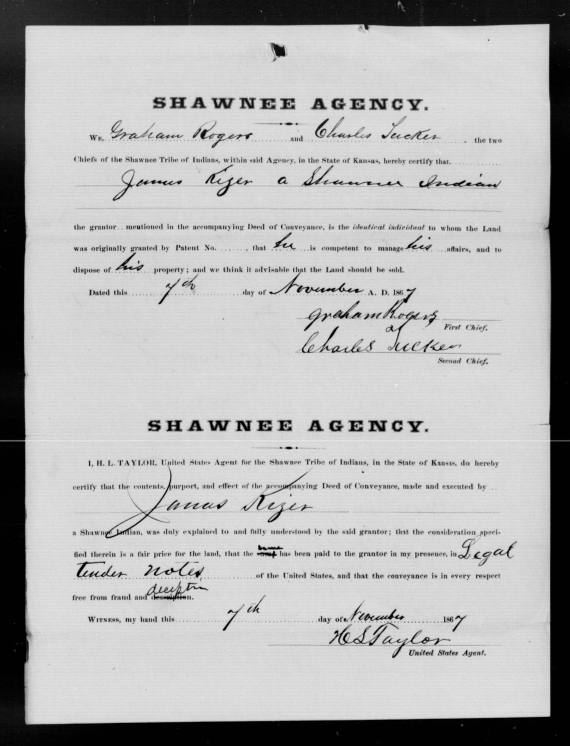 SHAWNEE AGENCY.
WE, Graham Rogers and Charles Tucker, the two
Chiefs of the Shawnee Tribe of Indians, within said Agency, in the State of Kansas, hereby certify that
James Kizer a Shawnee Indian
the grantor mentioned in the accompanying Deed of Conveyance, is the identical individual to whom the Land
was originally granted by Patent No. , that he is competent to manage his affairs, and to
dispose of his property; and we think it advisable that the Land should be sold.
Dated this 7th day of November A. D. 1867
Graham Rogers
First Chief.
Charles Tucker
Second Chief.
SHAWNEE AGENCY.
I, H. L. TAYLOR, United States Agent for the Shawnee Tribe of Indians, in the State of Kansas, do hereby
certify that the contents, purport, and effect of the accompanying Deed of Conveyance, made and executed by
James Kizer
a Shawnee Indian, was duly explained to and fully understood by the said grantor; that the consideration speci-
fied therein is a fair price for the land, that the same has been paid to the grantor in my presence, in Legal
tender notes of the United States, and that the conveyance is in every respect
free from fraud and deception.
WITNESS, my hand this 7th day of November 1867
H L Taylor
United States Agent.